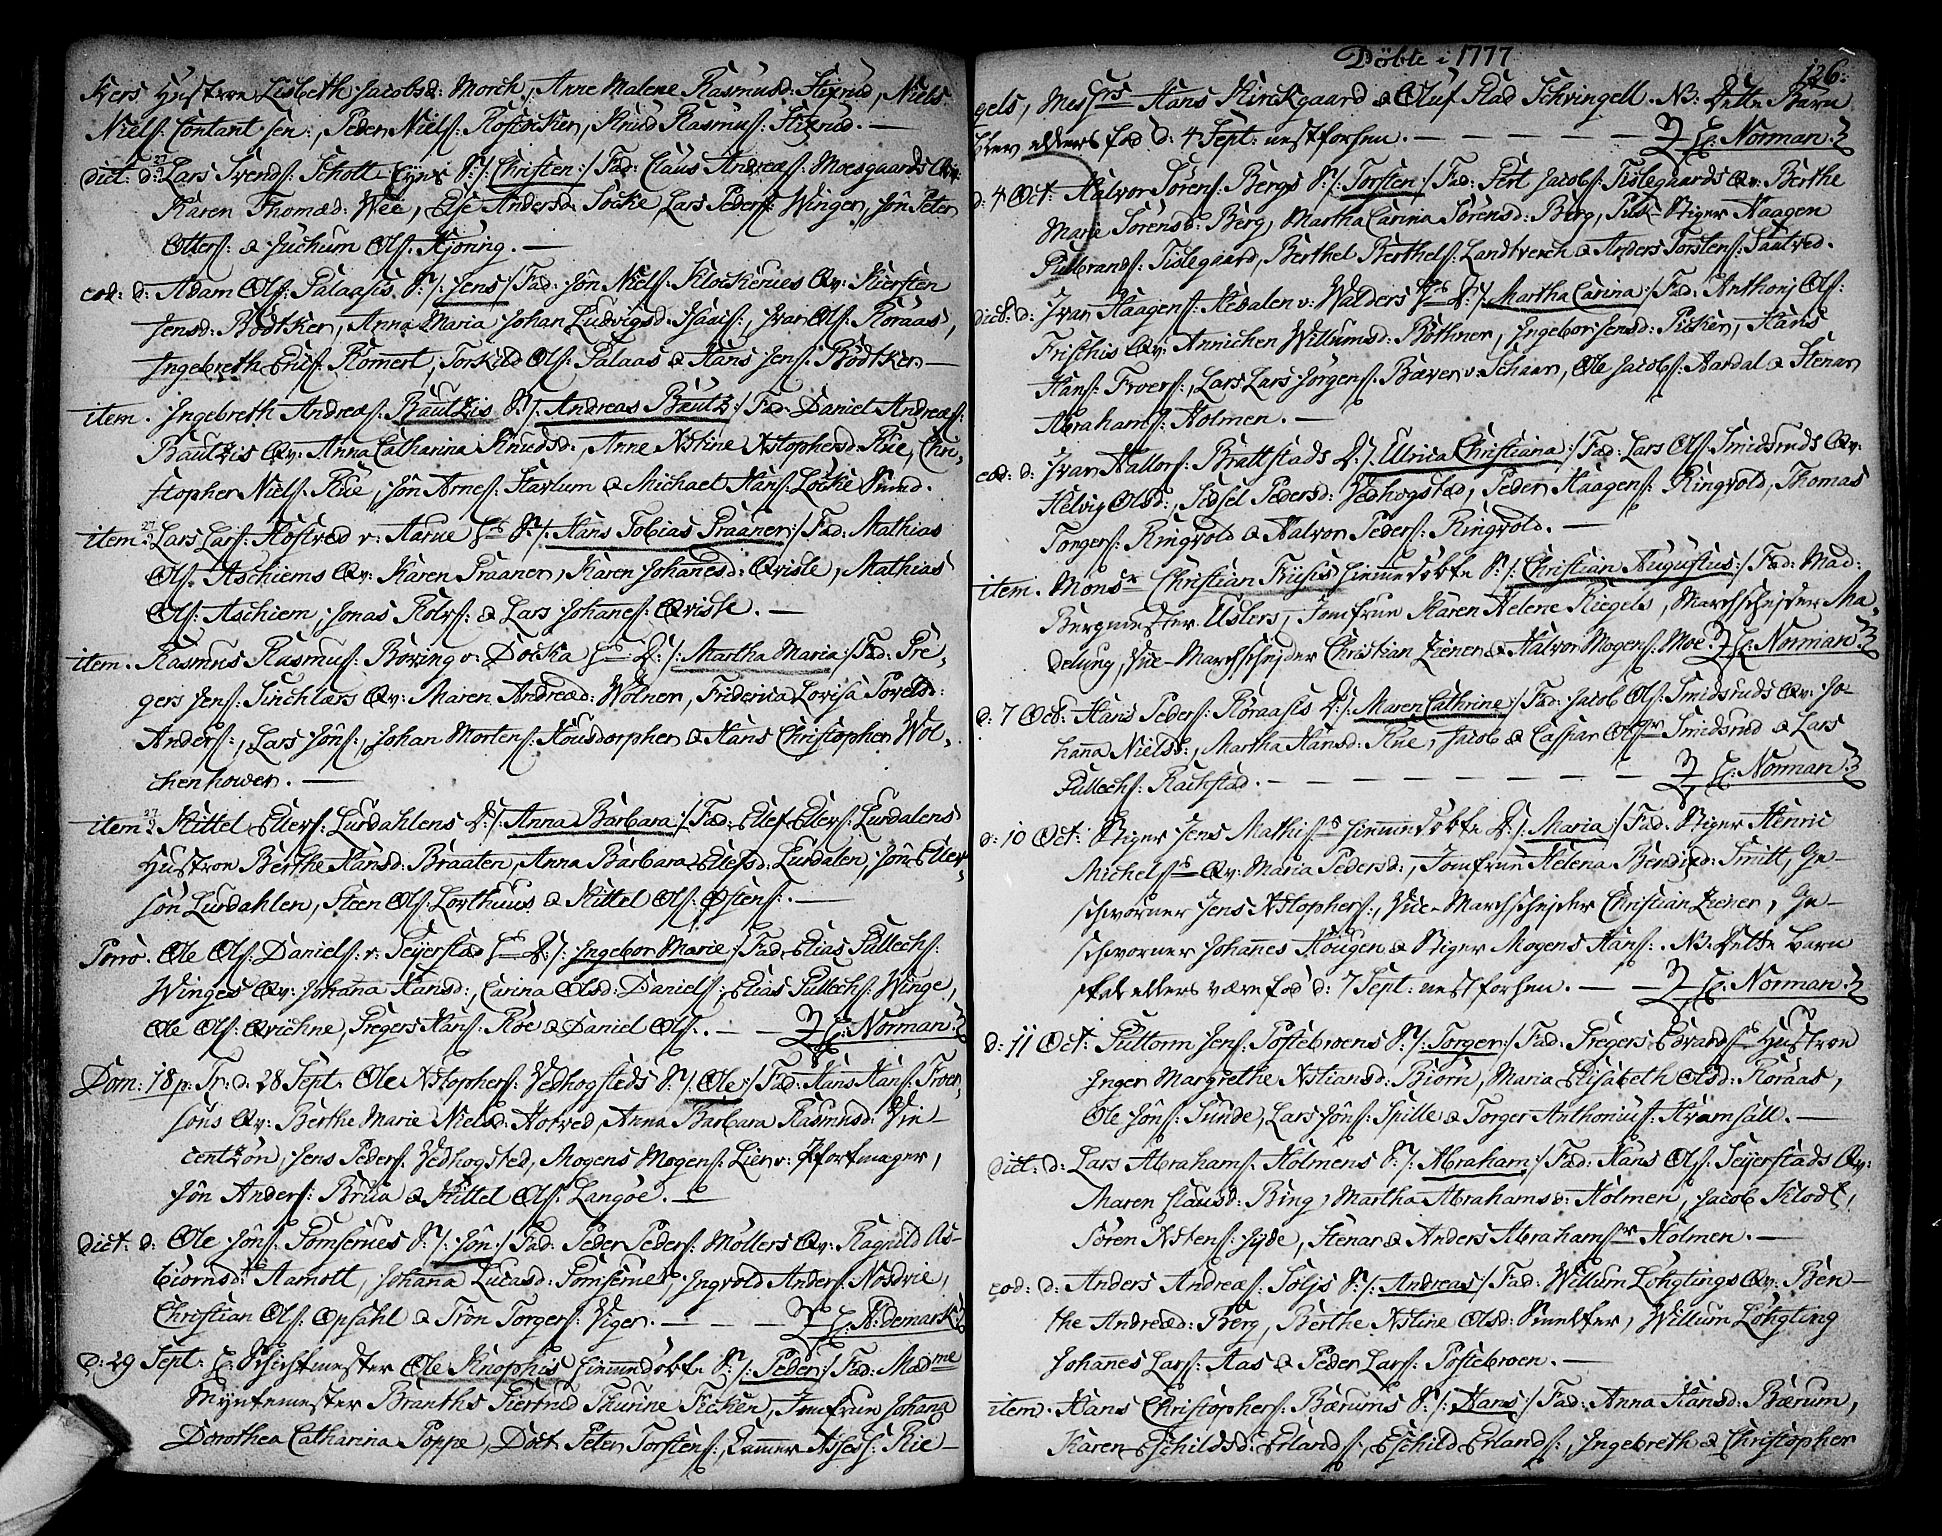 Ivers Hustroe Lisbeth Jacobsd: Morch, Anne Malene Rasmusd: Stixrud, Niels
Nielſ: Contant ſen:, Peder Nielſ: Rostocker, Knud Rasmuſ: Stixrud. —
dict: d: Lars Svendſ: Schott-Eyes S: /: Christen :/ Fad: Claus Andreæſ: Moesgaards Qv:
Karen Thomæd: Wee, Else Andersd: Locke, Lars Pederſ: Winger, Jön Peter
Otterſ: & Juchum Olſ: Hjoning. —
eod: d: Adam Olſ: Palaasis S: /: Jens :/ Fad: Jön Nielſ: Klockerues Qv: Kiersten
Jensd: Bödtker, Anna Maria Johan Ludvigsd: Isaacſ:, Ivar Olſ: Roraas,
Ingebreth Ericſ: Römert, Torkild Olſ: Palaas & Hans Jenſ: Bödtker. —
item. Ingebreth Andreæſ: Bautzis S: /: Andreas Bautz :/ Fad: Daniel Andreæſ:
Bautzis Qv: Anna Catharina Knudsd:, Anne Xstine Xstophersd: Rue, Chri-
stopher Nielſ: Rue, Jön Arneſ: Havlum & Michael Hanſ: Locke Smed.
item. Lars Larſ: Hostvæd v: Aarue S: /: Hans Tobias Praaner :/ Fad: Mathias
Olſ: Aschiems Qv: Karen Praaner, Karen Johanesd: Qvisle, Mathias
Olſ: Aschiem, Jonas Rolvſ: & Lars Johaneſ: Qvisle. —
item. Rasmus Rasmuſ: Böving v: Docka D: /: Martha Maria :/ Fad: Pre-
gers Jenſ: Sinchlærs Qv: Maren Andreæd: Wölner, Friderica Lovisa Povelsd:
Anderſ:, Lars Jönſ:, Johan Mortenſ: Housdorpher & Hans Christopher Wol-
chenhower. —
item Kittel Ellevſ: Lurdahlens D: /: Anna Barbara :/ Fad: Ellef Ellevſ: Lurdalens
Hustroe Berthe Hansd: Braaten, Anna Barbara Ellefsd: Lurdalen, Jön Ellev-
ſön Lurdahlen, Steen Olſ: Lovthuus & Kittel Olſ: Östenſ:. —
Porro. Ole Olſ: Danielſ: v: Teyerstad D: /: Ingebor Marie :/ Fad: Elias Gullechſ:
Winges Qv: Johana Hansd:, Carina Olsd: Danielſ:, Elias Gullechſ: Winge,
Ole Olſ: Qvichne, Gregers Hanſ: Roe & Daniel Olſ:. — — C: Norman.
Dom: 18 p: Tr: d: 28 Sept: Ole Xstopherſ: Vedhogsteds S: /: Ole :/ Fad: Hans Hanſ: Froer-
ſöns Qv: Berthe Marie Nielsd: Hotved, Anna Barbara Rasmusd: Vin-
centzön, Jens Pederſ: Vedhogsted, Mogens Mogenſ: Lier v: Pfortmager,
Jön Anderſ: Brua & Kittel Olſ: Langöe. —
dict: d: Ole Jönſ: Pomserues S: /: Jön :/ Fad: Peder Pederſ: Möllers Qv: Ragnild As-
biornsd: Aamott, Johana Lucasd: Pomserue, Ingvold Anderſ: Nosdvie,
Christian Olſ: Opsahl & Trön Torgerſ: Viger. — — — C: N: demark:
d: 29 Sept: C: Schichtmester Ole Knophis hiemmedöbte S: /: Peder :/ Fad: Madme
Myntemester Branths Giertrud Thurine Ficker, Jomfrue Johana
Dorothea Catharina Poppe, Doct: Peter Torstenſ:, Kammer Asseſſ: Rie-
Döbte i 1777
126.
gels, Messrs Hans Kirckgaard & Oluf Stad Schvingell. NB: Dette Barn
blev ellers fød d: 4 Sept: nestforhen. — — — — — C: Norman.
d: 4 Oct: Halvor Sörenſ: Bergs S: /: Torsten :/ Fad: Pert Jacobſ: Tislegaards Qv: Berthe
Marie Sörensd: Berg, Martha Carina Sörensd: Berg, Puk-Stiger Haagen
Gulbrandſ: Tislegaard, Berthel Berthelſ: Landtverch & Anders Torstenſ: Sautved.
dict: d: Ivar Haagenſ: Hesalen v: Walders D: /: Martha Carina :/ Fad: Anthonj Olſ:
Frischis Qv: Annichen Willumsd: Böthner, Ingebor Jensd: Picker, Hans
Hanſ: Froerſ:, Lars Lars Jörgenſ: Bæver v: Schaar, Ole Jacobſ: Aardal & Stenar
Abrahamſ: Holmen. —
eod: d: Ivar Hallorſ: Brattstads D: /: Ulrica Christiana :/ Fad: Lars Olſ: Smidsruds Qv:
Helvig Olsd:, Sidsel Pedersd: Vedhogstad, Peder Haagenſ: Ringvold, Thomas
Torgerſ: Ringvold & Halvor Pederſ: Ringvold. —
item. Monsr Christian Friisis hiemmedöbte S: /: Christian Augustus :/ Fad: Mad:
Bergmester Uslers, Jomfrue Karen Helene Riegels, Marchschejder Ma-
delung, Vice-Marchschejder Christian Ziener & Halvor Mogenſ: Moe C: Norman.
d: 7 Oct: Hans Pederſ: Röraasis D: /: Maren Cathrine :/ Fad: Jacob Olſ: Smidsruds Qv: Jo-
hana Nielsd:, Martha Hansd: Rue, Jacob & Casspar Olſr Smidsrud & Lars
Gullechſ: Rachstad. — — — — — — — — C: Norman.
d: 10 Oct: Stiger Jens Mathiſs hiemmedöbte D: /: Maria :/ Fad: Stiger Henric
Michelſs Qv: Maria Pedersd:, Jomfrue Helena Bendixd: Smitt, Ge-
schworner Jens Xstopherſ:, Vice-Marchschejder Christian Ziener, Ge-
schworner Johannes Hougen & Stiger Mogens Hanſ:. NB: Dette Barn
skal ellers være fød d: 7 Sept: nestforhen. — — C: Norman.
d: 11 Oct: Guttorm Jenſ: Postebroens S: /: Torger :/ Fad: Gregers Edvardſs Hustroe
Inger Margrethe Xstiansd: Biörn, Maria Elisabeth Olsd: Roraas,
Ole Jönſ: Sunde, Lars Jönſ: Spille & Torger Anthoniuſ: Kramsall. —
dict: d: Lars Abrahamſ: Holmens S: /: Abraham :/ Fad: Hans Olſ: Teyerstads Qv:
Maren Clausd: Bing, Martha Abrahamsd: Holmen, Jacob Klodt,
Sören Xstenſ: Gyde, Stenar & Anders Abrahamſr Holmen. —
eod: d: Anders Andreæſ: Soljs S: /: Andreas :/ Fad: Willum Löhgtings Qv: Ben-
the Andreæd: Berg, Berthe Xstine Olsd: Sunckter, Willum Löhgting
Johannes Larſ: Aas & Peder Larſ: Postebroen. —
item. Hans Christopherſ: Bærums S: /: Hans :/ Fad: Anna Hansd: Bærum,
Karen Eschildsd: Erlandſ:, Eschild Erlandſ:, Ingebreth & Christopher